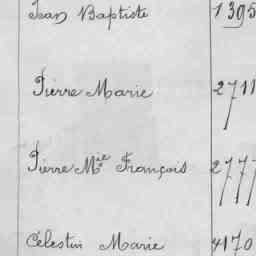 Jean Baptiste 1395
Pierre Marie 2711
Pierre Mie François 2777
Célestin Marie 4170